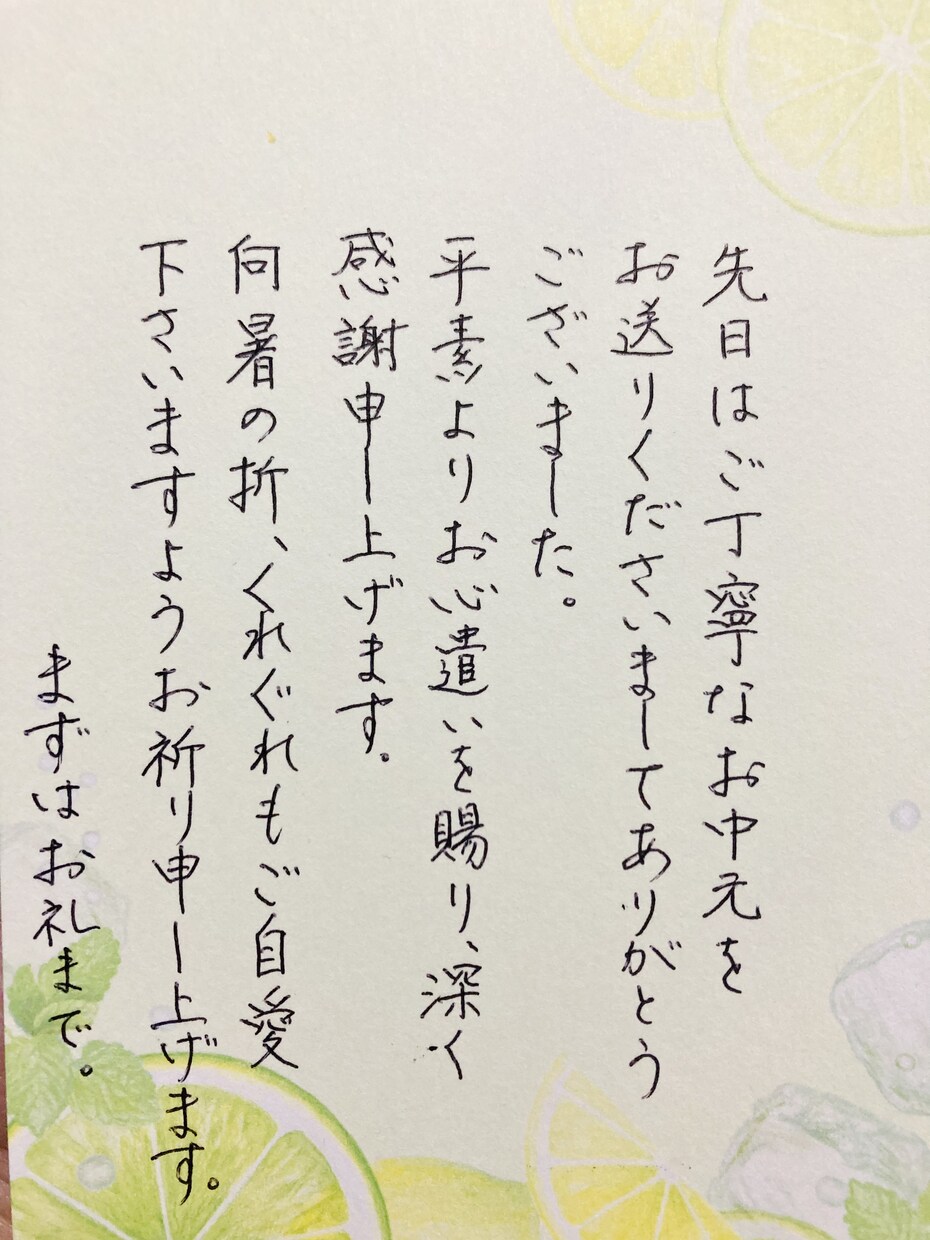 先日はご丁寧なお中元を
お送りくださいましてありがとう
ございました。
平素よりお心遣いを賜り、深く
感謝申し上げます。
向暑の折、くれぐれもご自愛
下さいますようお祈り申し上げます。
まずはお礼まで。